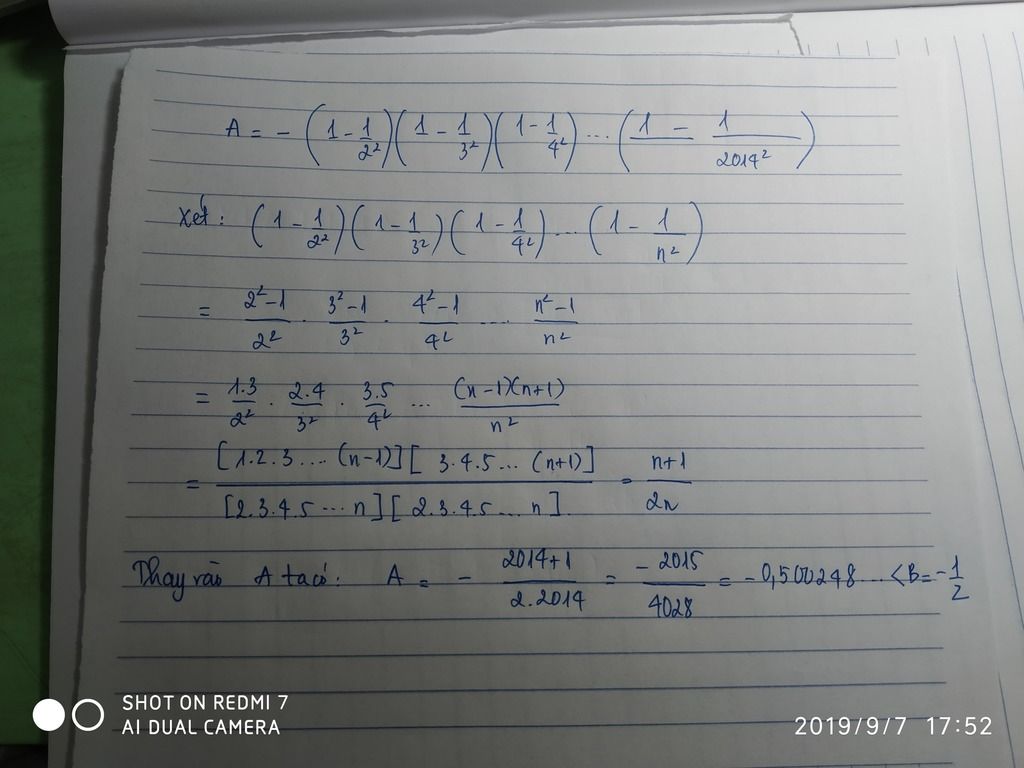 A = - (1 - 1/2²)(1 - 1/3²)(1 - 1/4²) ... (1 - 1/2014²)
Xét: (1 - 1/2²)(1 - 1/3²)(1 - 1/4²) ... (1 - 1/n²)
= (2²-1)/2² . (3²-1)/3² . (4²-1)/4² ... (n²-1)/n²
= 1.3/2² . 2.4/3² . 3.5/4² ... (n-1)(n+1)/n²
= [1.2.3... (n-1)][3.4.5... (n+1)] / [2.3.4.5...n][2.3.4.5...n] = (n+1)/2n
Thay vào A ta có: A = - (2014+1)/(2.2014) = -2015/4028 = -0,500248... < B = -1/2
SHOT ON REDMI 7
AI DUAL CAMERA
2019/9/7 17:52